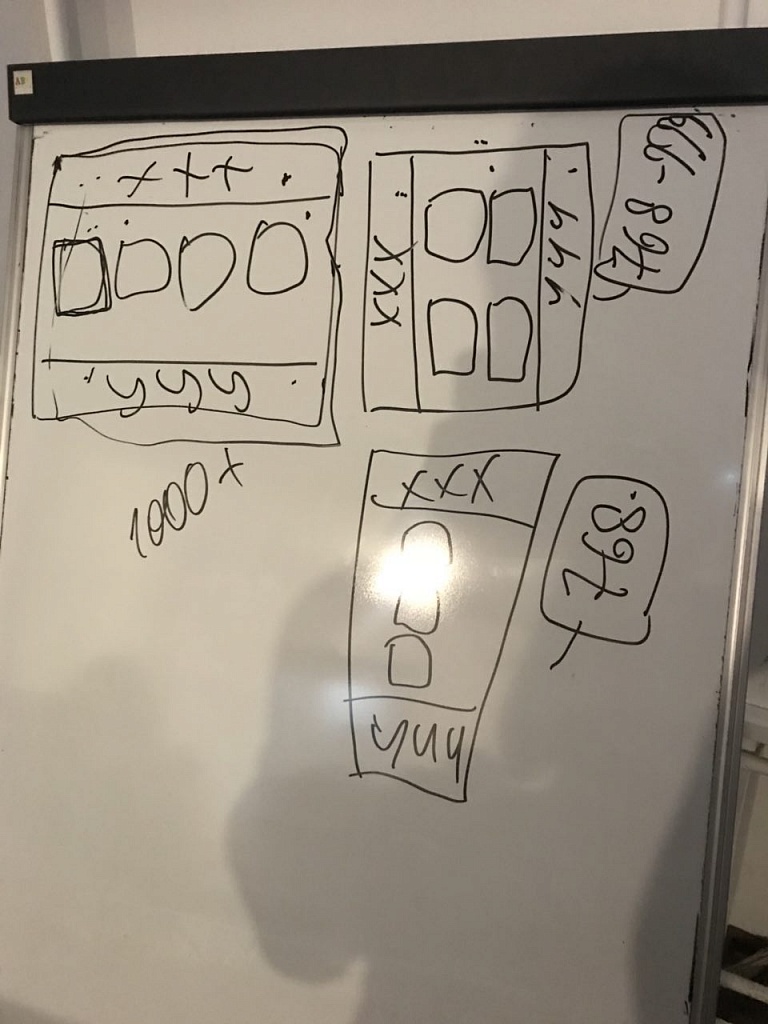 XXX
yyy
1000+
XXX
yyy
768-999
XXX
yyy
768